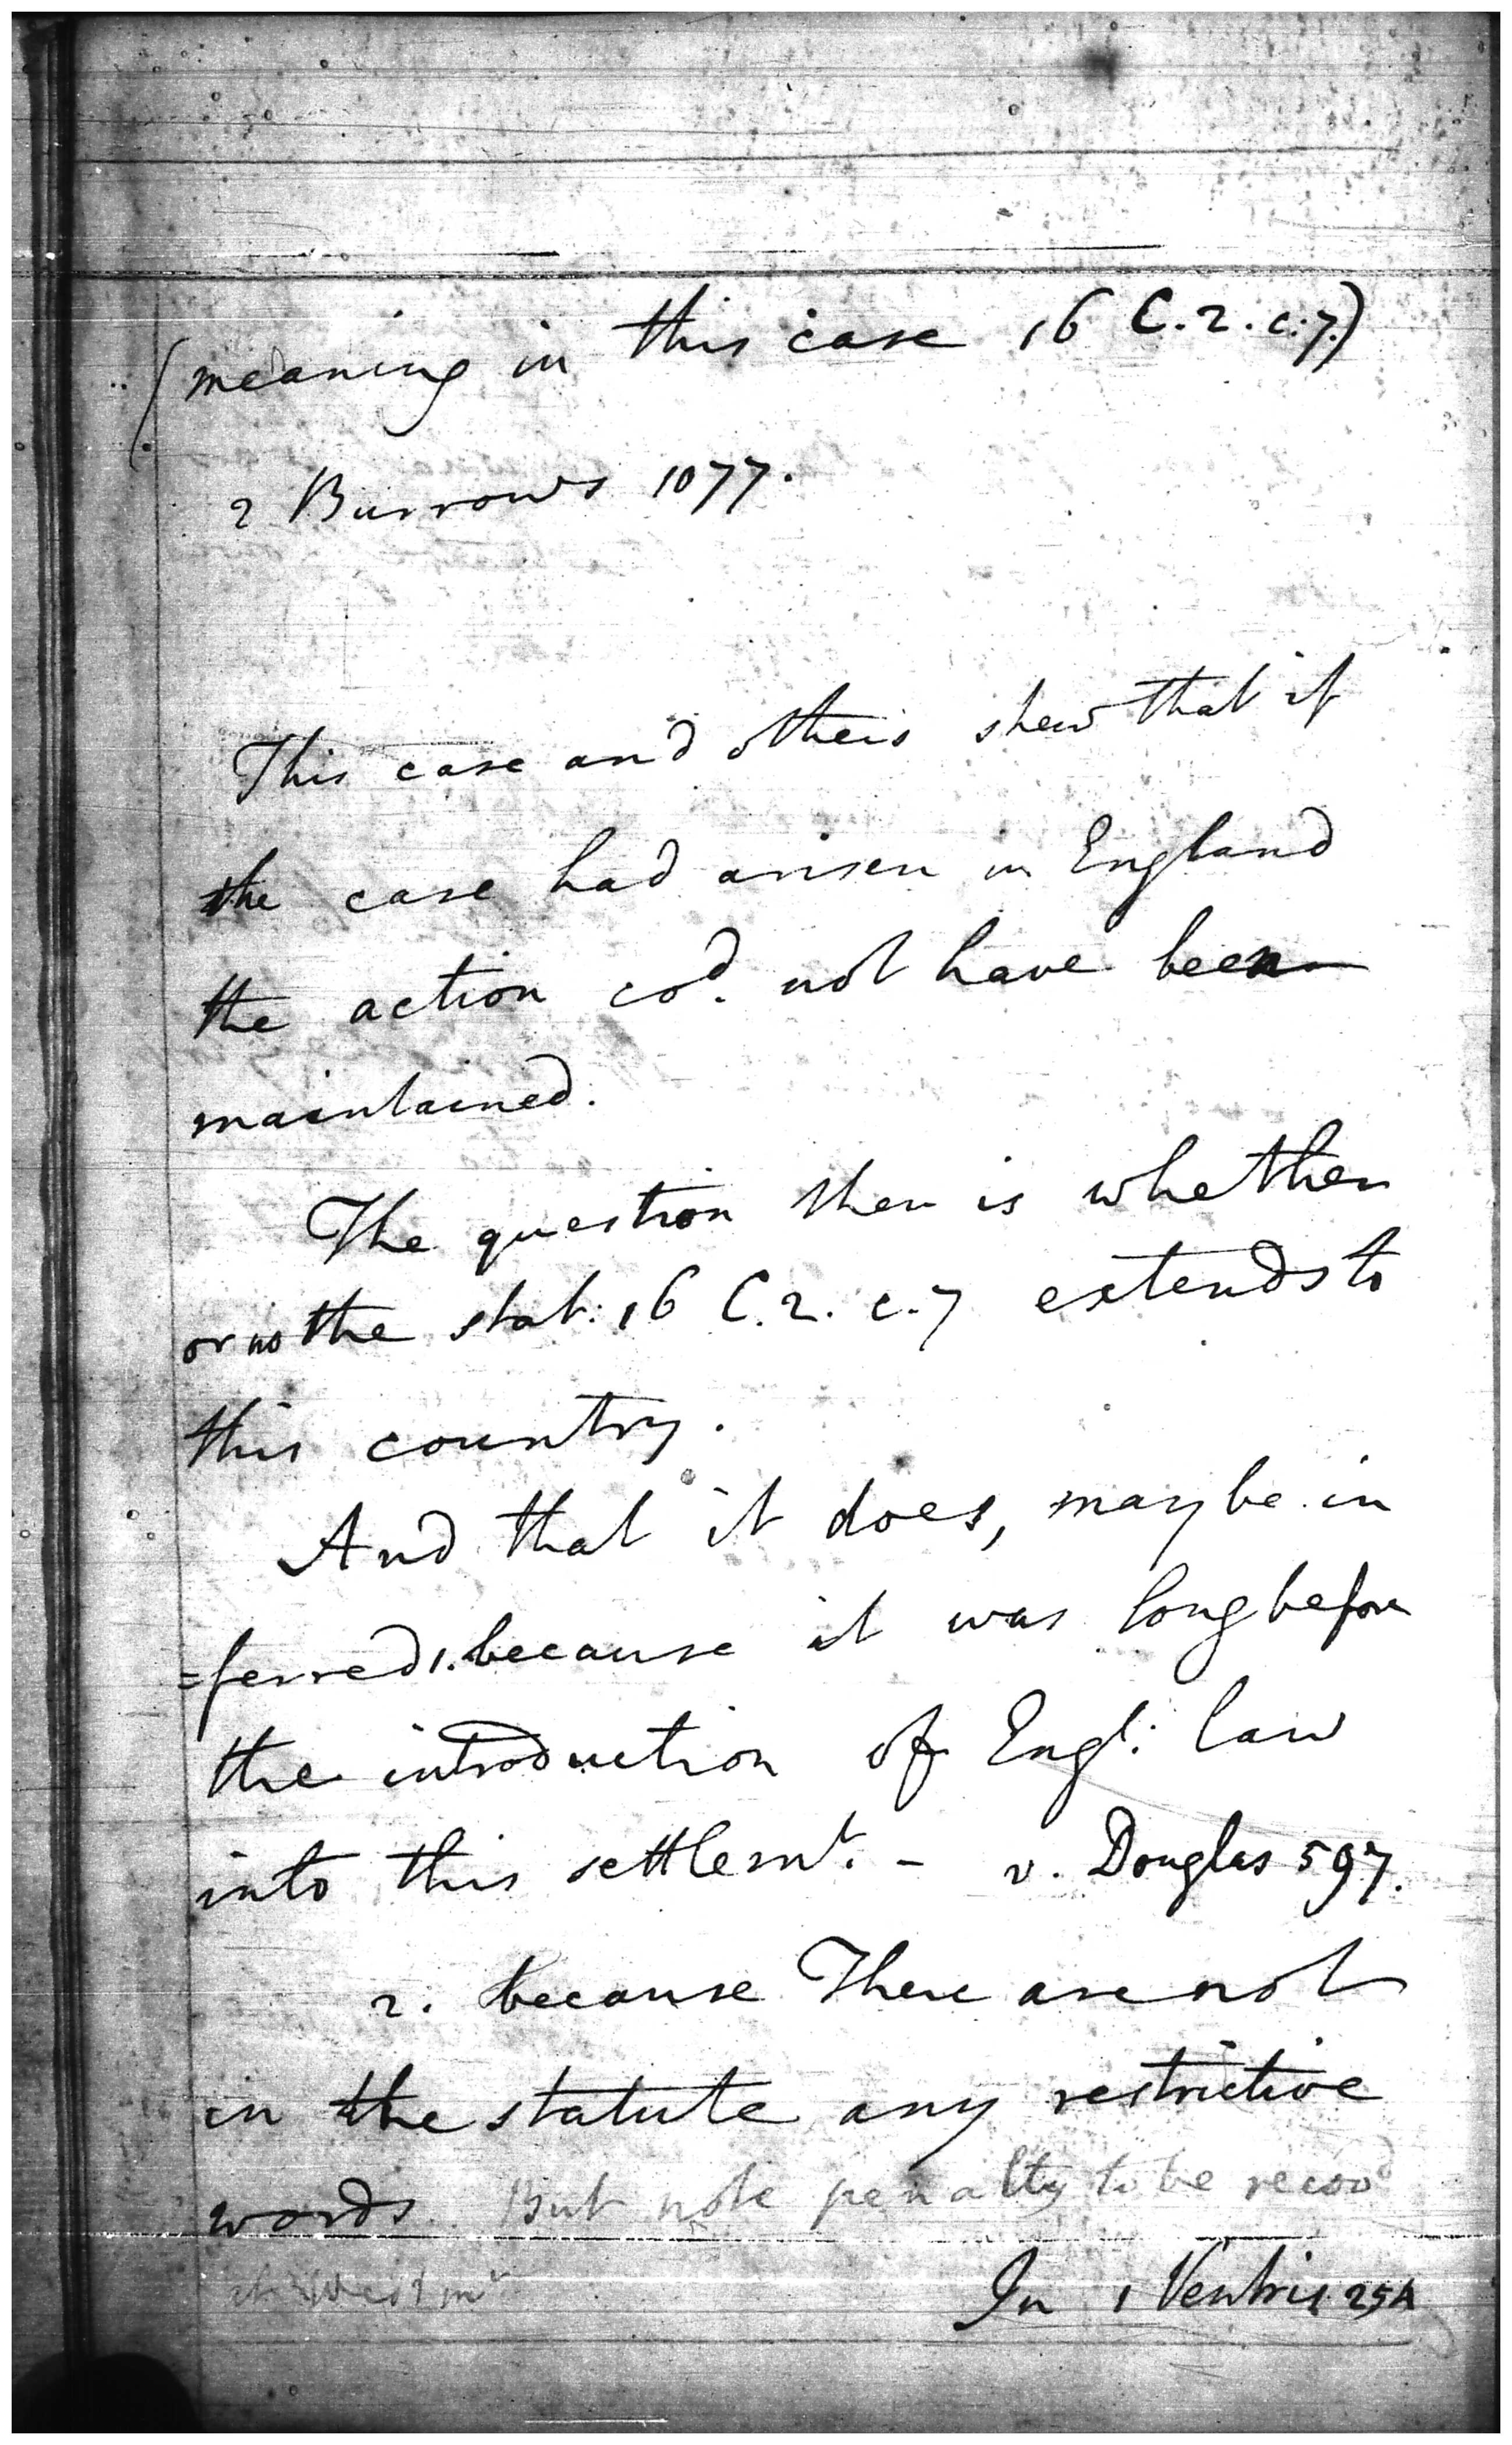 (meaning in this case 16 C.2. c:7.)
2 Burrows 1077.
This case and others shew that if
the case had arisen in England
the action cod. not have been
maintained.
The question then is whether
or no the stat: 16 C.2. c.7 extends to
this country.
And that it does, may be in
=ferred 1. because it was long before
the introduction of Engl: law
into this settlemt. - v. Douglas 597.
2. because There are not
in the statute any restrictive
words. But note penalty to be recovd
at Westmr
In 1 Ventris 254